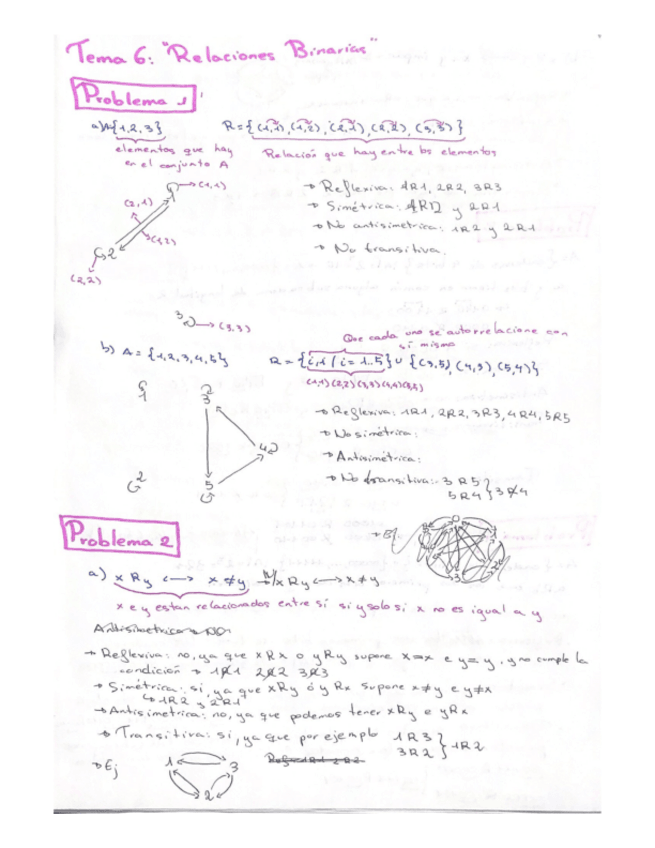 Tema 6: "Relaciones Binarias"
Problema 1
a) A{1,2,3}
R = {(1,1), (1,2), (2,1), (2,2), (3,3)}
elementos que hay
en el conjunto A
Relación que hay entre los elementos
1 → (1,1)
(2,1)
2
(1,2)
(2,2)
3 → (3,3)
→ Reflexiva: 1R1, 2R2, 3R3
→ Simétrica: 1R2 y 2R1
→ No antisimetrica: 1R2 y 2R1
→ No transitiva.
Que cada uno se autorrelacione con
sí mismo
b) A = {1,2,3,4,5}
R = {i,i / i = 1..5} U {(3,5), (4,3), (5,4)}
(1,1)(2,2)(3,3)(4,4)(5,5)
1
3
4
2
5
→ Reflexiva: 1R1, 2R2, 3R3, 4R4, 5R5
→ No simétrica:
→ Antisimétrica:
→ No transitiva: 3R5
5R4 } 3R̸4
Problema 2
→ Ej
a) xRy ↔ x≠y
xRy ↔ x≠y
x e y estan relacionados entre sí si y solo si x no es igual a y
Antisimetrica → NO
→ Reflexiva: no, ya que xRx o yRy supone x=x e y=y, y no cumple la
condición → 1R̸1 2R̸2 3R̸3
→ Simétrica: si, ya que xRy ó yRx supone x≠y e y≠x
↳ 1R2 y 2R1
→ Antisimetrica: no, ya que podemos tener xRy e yRx
→ Transitiva: si, ya que por ejemplo 1R3
3R2 } 1R2
→ Ej
1
3
2
Ref → 1R1 2R2